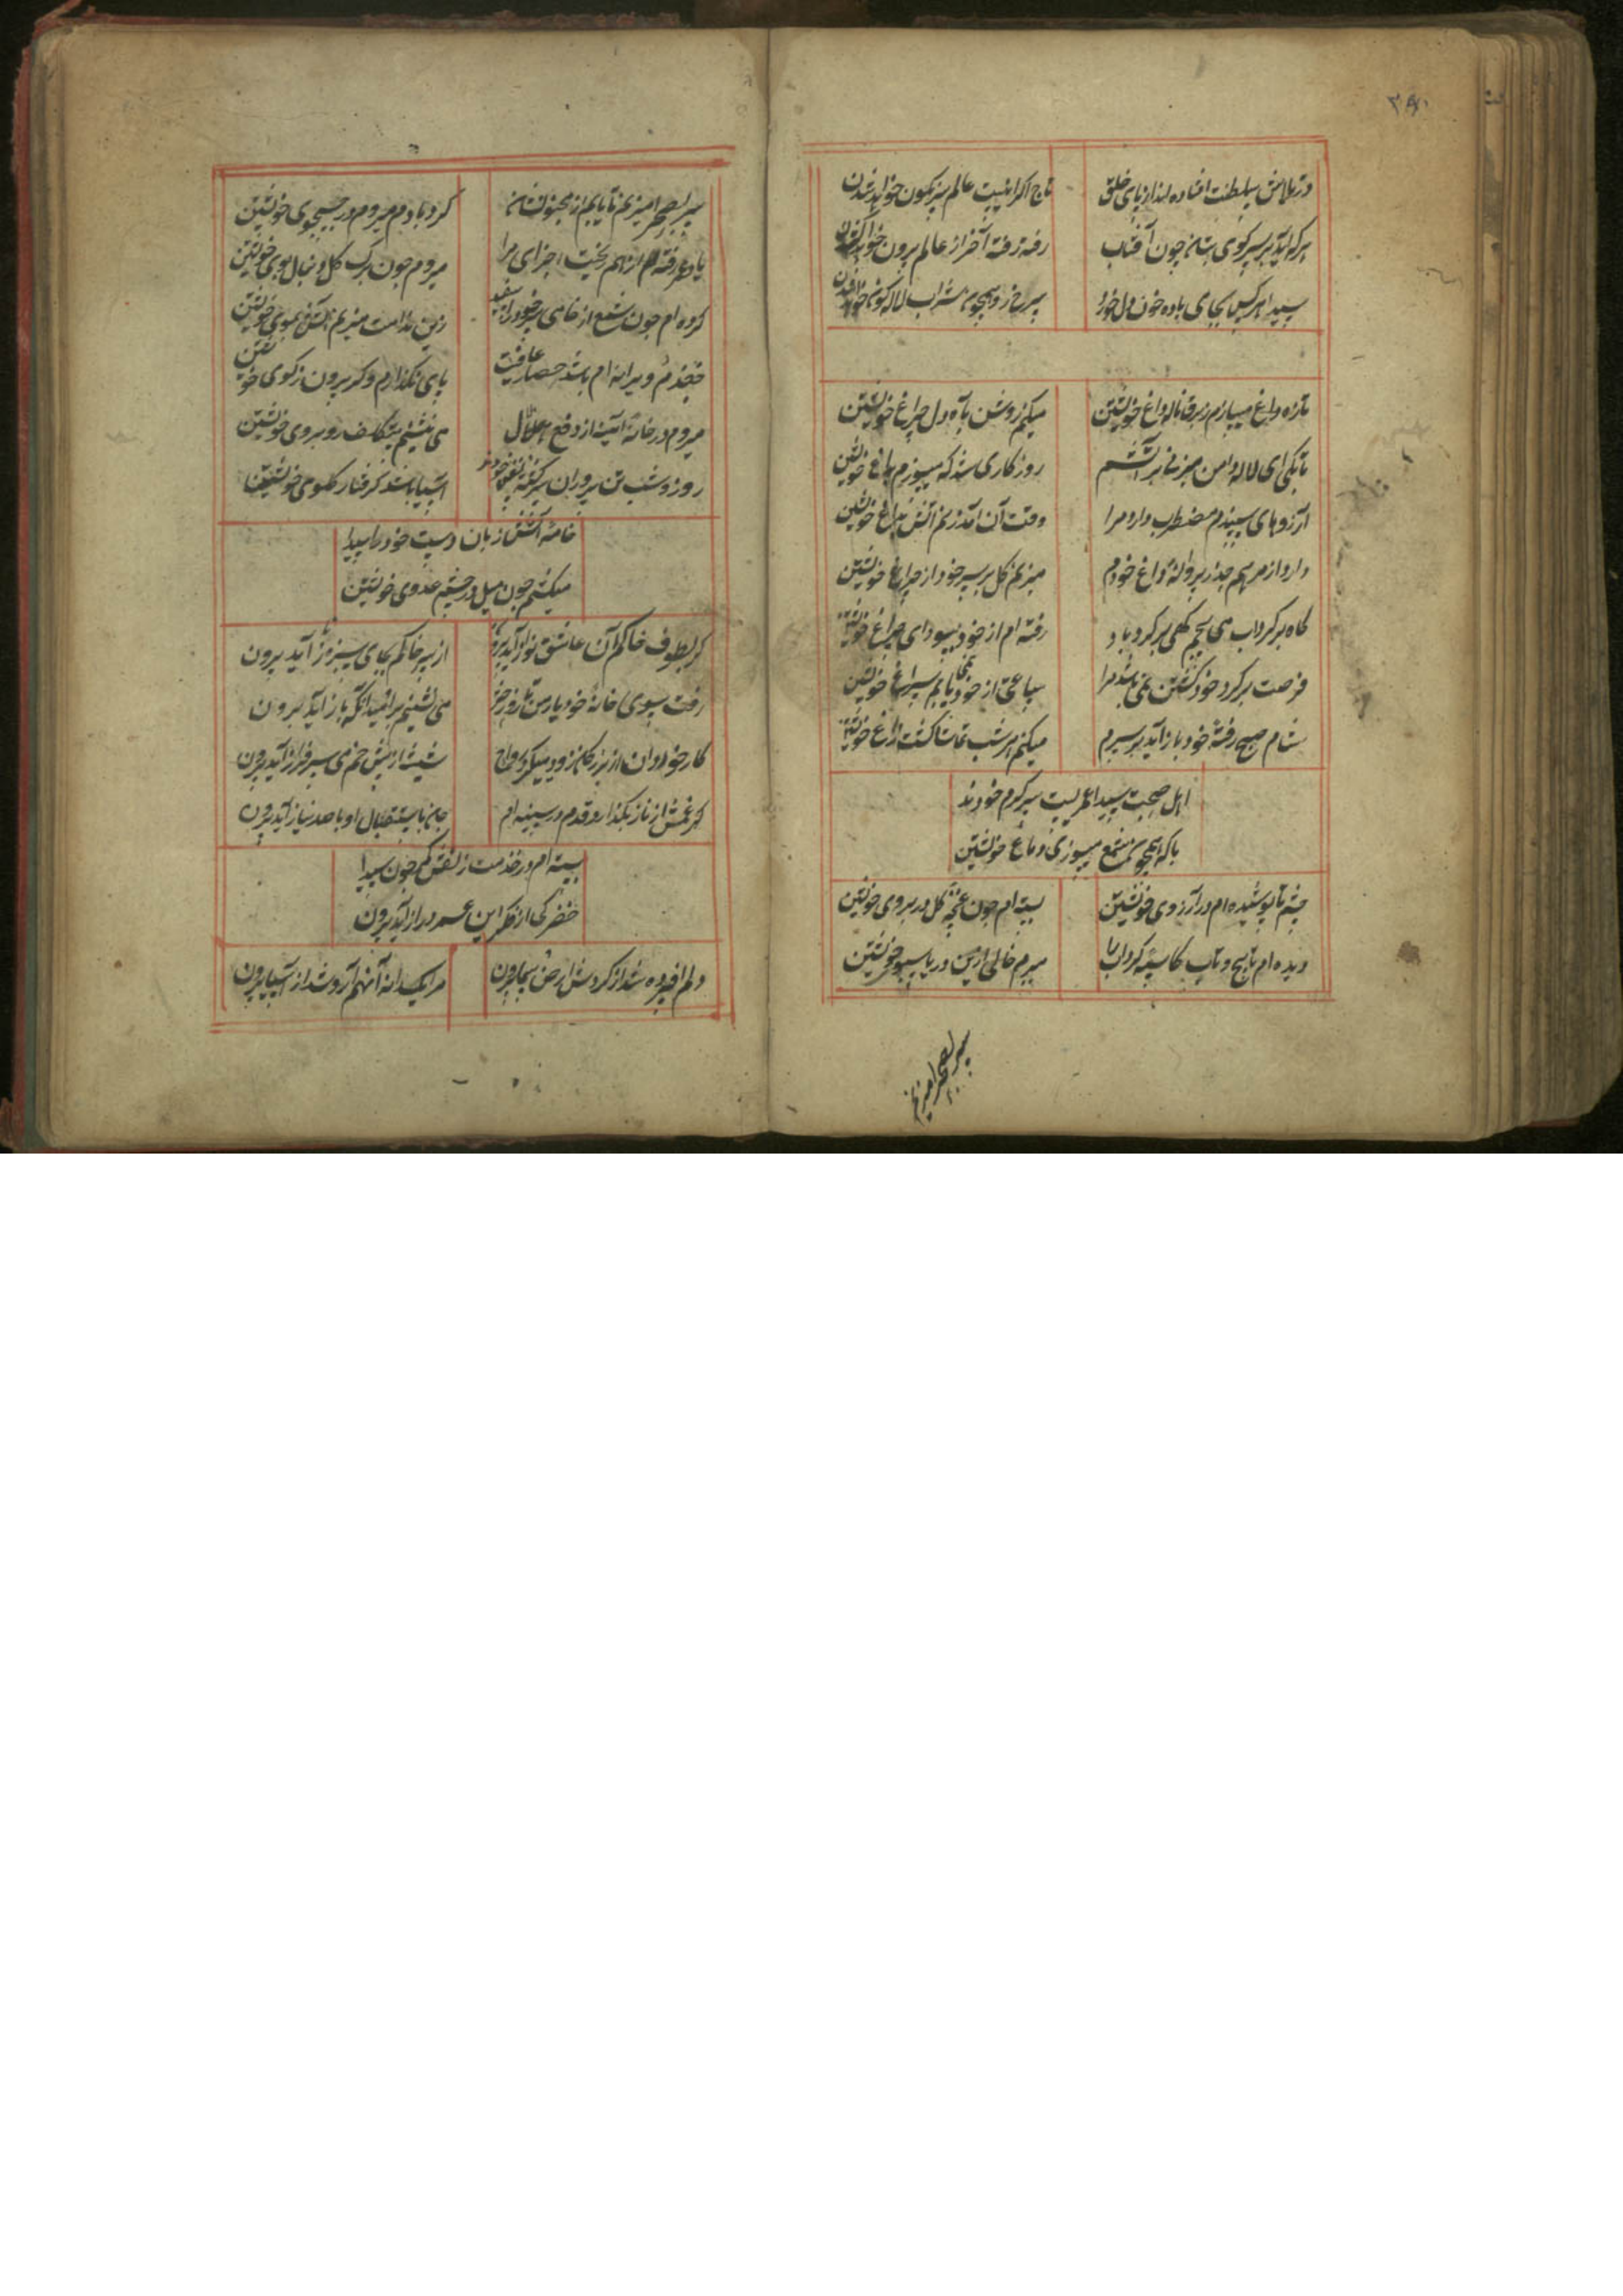 ۳۸۱
در تلاش سلطنت افتاده‌اند از پای خلق
تاج اگر اینست عالم سرنگون خواهد شدن
هر که آید بر سر کوی بتان چون آفتاب
رفته رفته آخر از عالم برون خواهد شدن
سیدا هر کس بجای باده خون دل خورد
سرخ رو همچون شراب لاله‌گون خواهد شدن
تازه داغ میسازم ز برق ناله داغ خویشتن
میکنم روشن بآه دل چراغ خویشتن
تا بکی ای لاله دامن میزنی بر آتشم
روزگاری شد که میسوزم بداغ خویشتن
آرزوهای سپندم مضطرب دارد مرا
وقت آن آمد زنم آتش بباغ خویشتن
دارد از مرهم حذر پروانه داغ خودم
میزنم گل بر سر خود از چراغ خویشتن
گاه بر گرداب می‌پیچم گهی بر گردباد
رفته‌ام از خود بسودای سراغ خویشتن
فرصت بر گرد خود گشتن نمی‌باشد مرا
ساعتی از خود نمی‌یابم سراغ خویشتن
شام صبح رفته خود باز آید بر سرم
میکنم امشب تماشا گشت زاغ خویشتن
اهل صحبت سیدا عمریست سرگرم خودند
با که همچون شمع میسوزی دماغ خویشتن
چشم تا پوشیده‌ام در آرزوی خویشتن
بسته‌ام چون غنچه گل در بروی خویشتن
دیده‌ام تا پیچ و تاب کاسه گرداب را
میبرم خالی ازین دریا سبوی خویشتن
سر بصحرا میزنم
سر بصحرا میزنم تا یابم از مجنون نشان
گردبادم میروم در جستجوی خویشتن
یاد عمر رفته از هم ریخت اجزای مرا
میروم چون برگ گل دنبال بوی خویشتن
کرده‌ام چون شمع از خامی سر خود را سفید
زین ندامت میزنم آتش بموی خویشتن
جغدم و ویرانه‌ام باشد حصار عافیت
پای نگذارم دگر بیرون ز کوی خویشتن
میروم در خانه آئینه از دفع ملال
می‌نشینم بی‌تکلف روبروی خویشتن
روز و شب تن پروران سرگشته نفس خودند
آسیا باشد گرفتار گلوی خویشتن
خامه آتش زبان دست خود را سیدا
میکشم چون میل در چشم عدوی خویشتن
گر بطوف خاکم آن عاشق نواز آید برون
از سر خاکم بجای سبزه ناز آید برون
رفت سوی خانه خود یار من تا روز حشر
می‌نشینم بر امید آنکه باز آید برون
کار خردان از بزرگان زود میگیرد رواج
شیشه از پیش خم می سرفراز آید برون
گر غمش از ناز بگذارد قدم در سینه‌ام
جان باستقبال او با صد نیاز آید برون
بسته‌ام در خدمت زلفش کمر چون سیدا
خضر کی از فکر این عمر دراز آید برون
دلم افسرده شد از گردش ارض و سما بیرون
مرا یکدانه آنهم آرد شد از آسیا بیرون